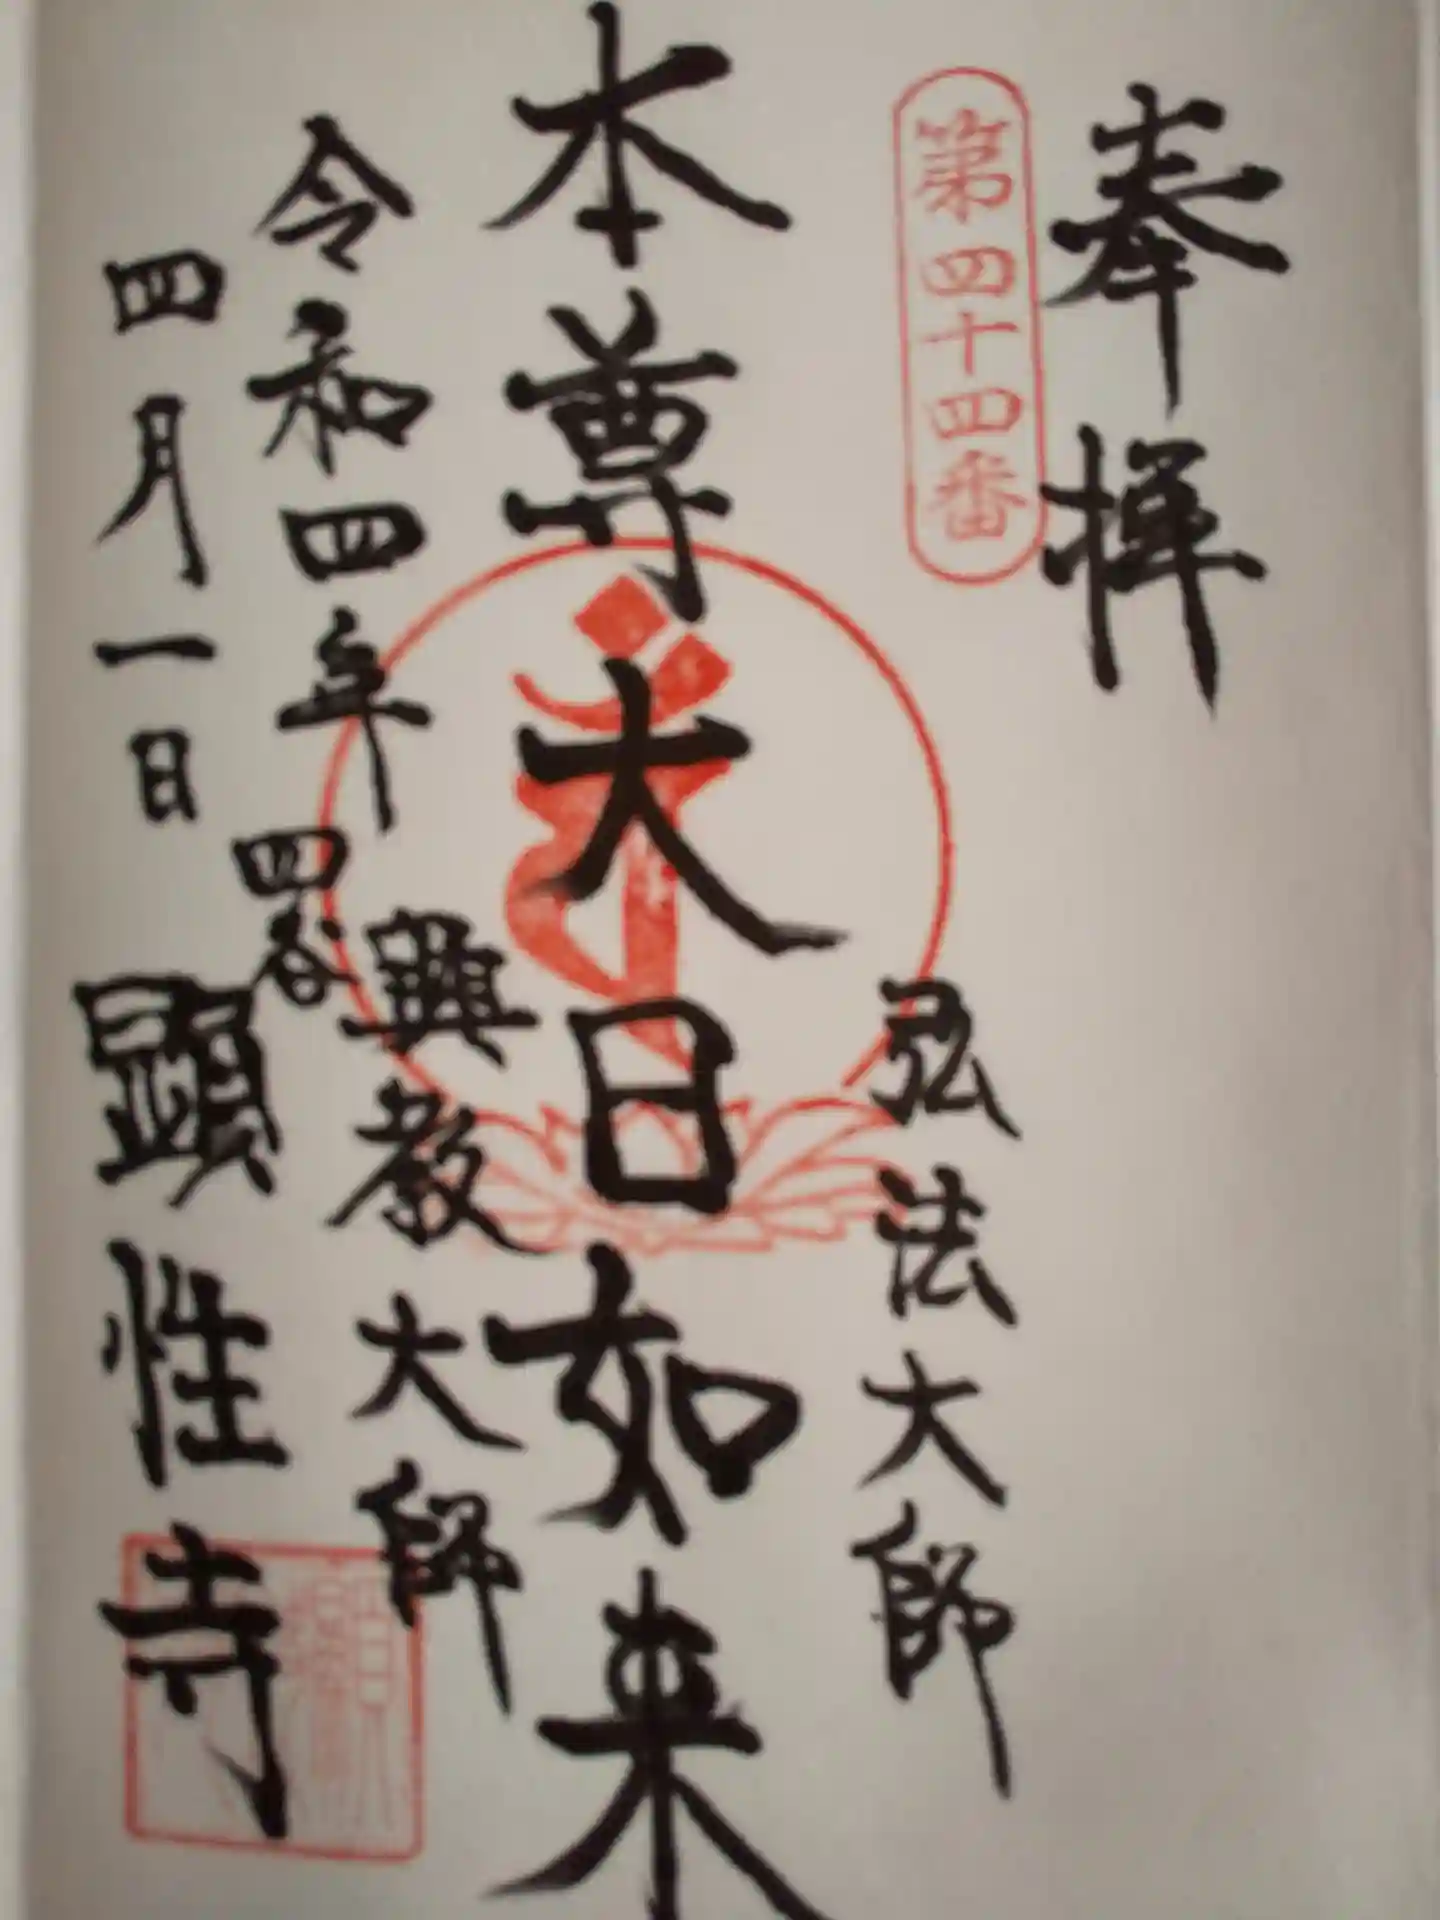 奉拝
第四十四番
弘法大師
本尊大日如来
興教大師
令和四年
四月一日
四谷
顕性寺